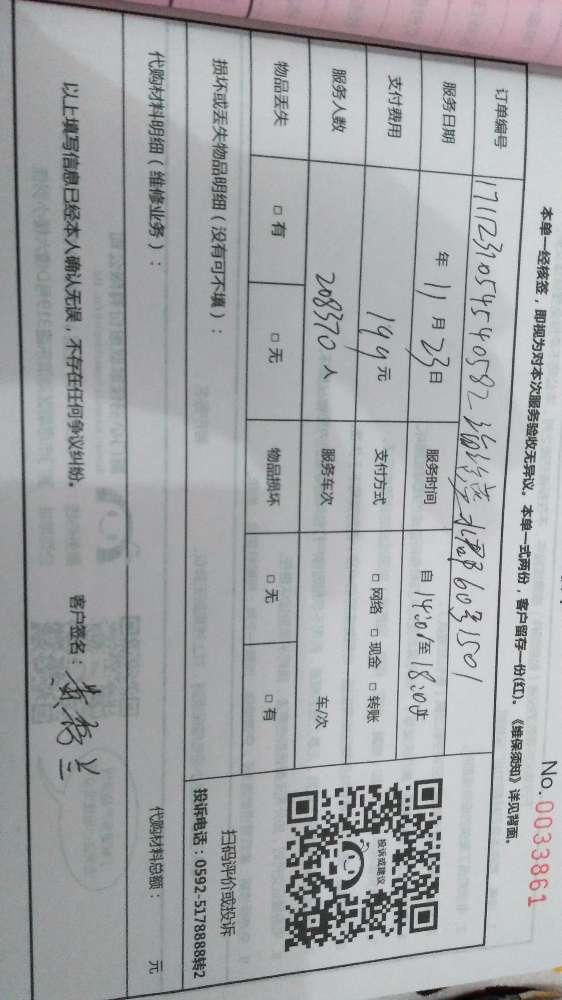 No.0033861
本单一经核签，即视为对本次服务验收无异议。本单一式两份，客户留存一份(红)。《维保须知》详见背面。
订单编号 1711231054540582 603 1501
服务日期 年 11 月 23 日 服务时间 自 14:00 至 18:00
支付费用 199 元 支付方式 □ 网络 □ 现金 □ 转账
服务人数 208370 人 服务车次 车/次
物品丢失 □ 有 □ 无 物品损坏 □ 无 □ 有
投诉或建议
扫码评价或投诉
投诉电话：0592-5178888转2
损坏或丢失物品明细（没有可不填）：
代购材料明细（维修业务）： 代购材料总额： 元
以上填写信息已经本人确认无误，不存在任何争议纠纷。 客户签名：黄秀兰